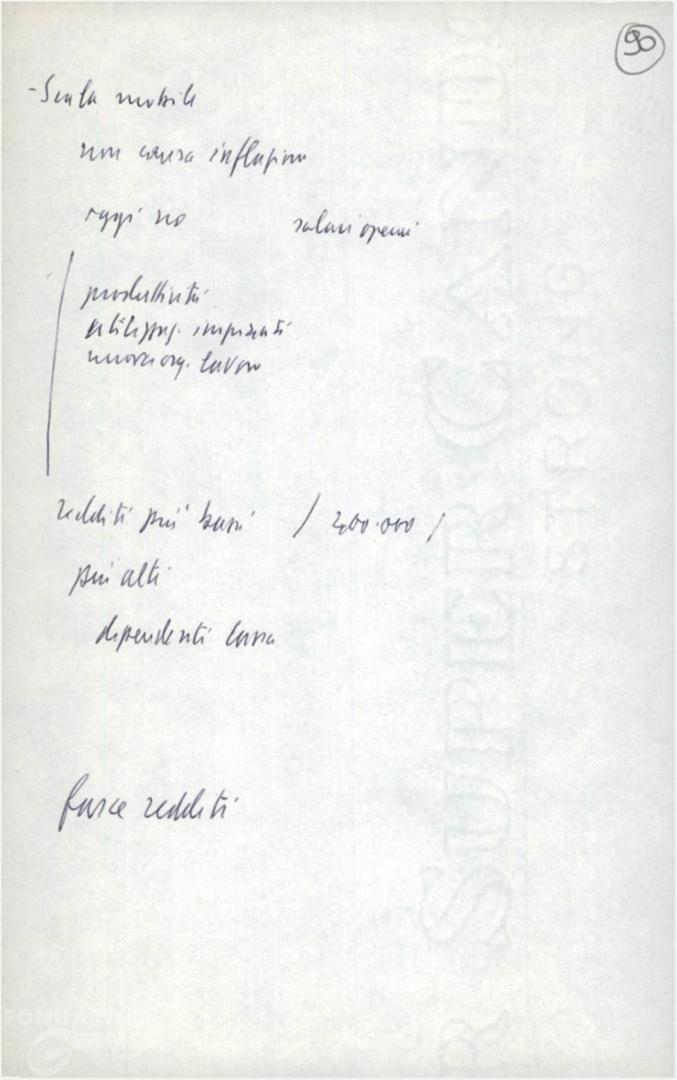 90
- Scala mobile
non causa inflazione
oggi no salari operai
produttività
utilizzaz. impianti
nuova org. lavoro
redditi più bassi / 400.000 /
più alti
dipendenti
fasce redditi
SUPER CAND
STRONG